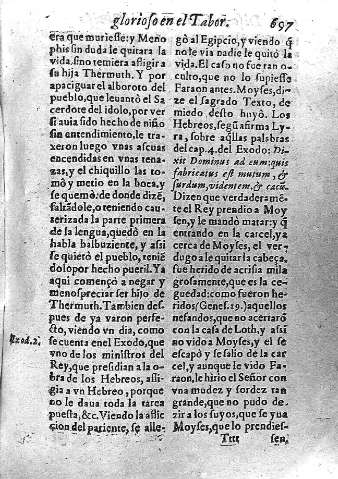 glorioso en el Tabor. 697
era que muriesse: y Meno
phis sin duda le quitara la
vida, sino temiera afligir a
su hija Thermuth. Y por
apaciguar el alboroto del
pueblo, que leuantò el Sa
cerdote del idolo, por ver
si auia sido hecho de niño
sin entendimiento, le tra-
xeron luego vnas ascuas
encendidas en vnas tena-
zas, y el chiquillo las to-
mò y metio en la boca, y
se quemò: de donde dizē,
salıēdole, o teniendo cau-
terizada la parte primera
de la lengua, quedò en la
habla balbuziente, y assi
se quietò el pueblo, teniē
dolo por hecho pueril. Ya
aqui començò a negar y
menospreciar ser hijo de
Thermuth. Tambien des-
pues de ya varon perfe-
cto, viendo vn dia, como
se cuenta en el Exodo, que
vno de los ministros del
Rey, que presidian a la o-
bra de los Hebreos, afli-
gia a vn Hebreo, porque
no le daua toda la tarea
puesta, &c. Viendo la aflic
cion del paciente, se alle-
Exod. 2.
gò al Egipcio, y viendo q̄
no le via nadie le quitò la
vida. El caso no fue tan o-
culto, que no lo supiesse
Faraon antes. Moyses, di-
ze el sagrado Texto, de
miedo desto huyò. Los
Hebreos, segū afirma Ly-
ra, sobre aq̄llas palabras
del cap. 4. del Exodo: Di-
xit Dominus ad eum: quis
fabricatus est mutum, &
surdum, videntem, & cæcū.
Dizen que verdaderamē-
te el Rey prendio a Moy
sen, y le mandò matar: y q̄
entrando en la carcel, ya
cerca de Moyses, el ver-
dugo a le quitar la cabeça,
fue herido de acrisia mila
grosamente, que es la ce-
guedad: como fueron he-
ridos (Genes. 19.) aquellos
nefandos, que no acertarō
con la casa de Loth, y assi
no vido a Moyses, y el se
escapò y se salio de la car
cel, y aunque le vido Fa-
raon, le hirio el Señor con
vna mudez y sordez tan
grande, que no pudo de-
zir a los suyos, que se yua
Moyses, que lo prendies-
Tttt sen,